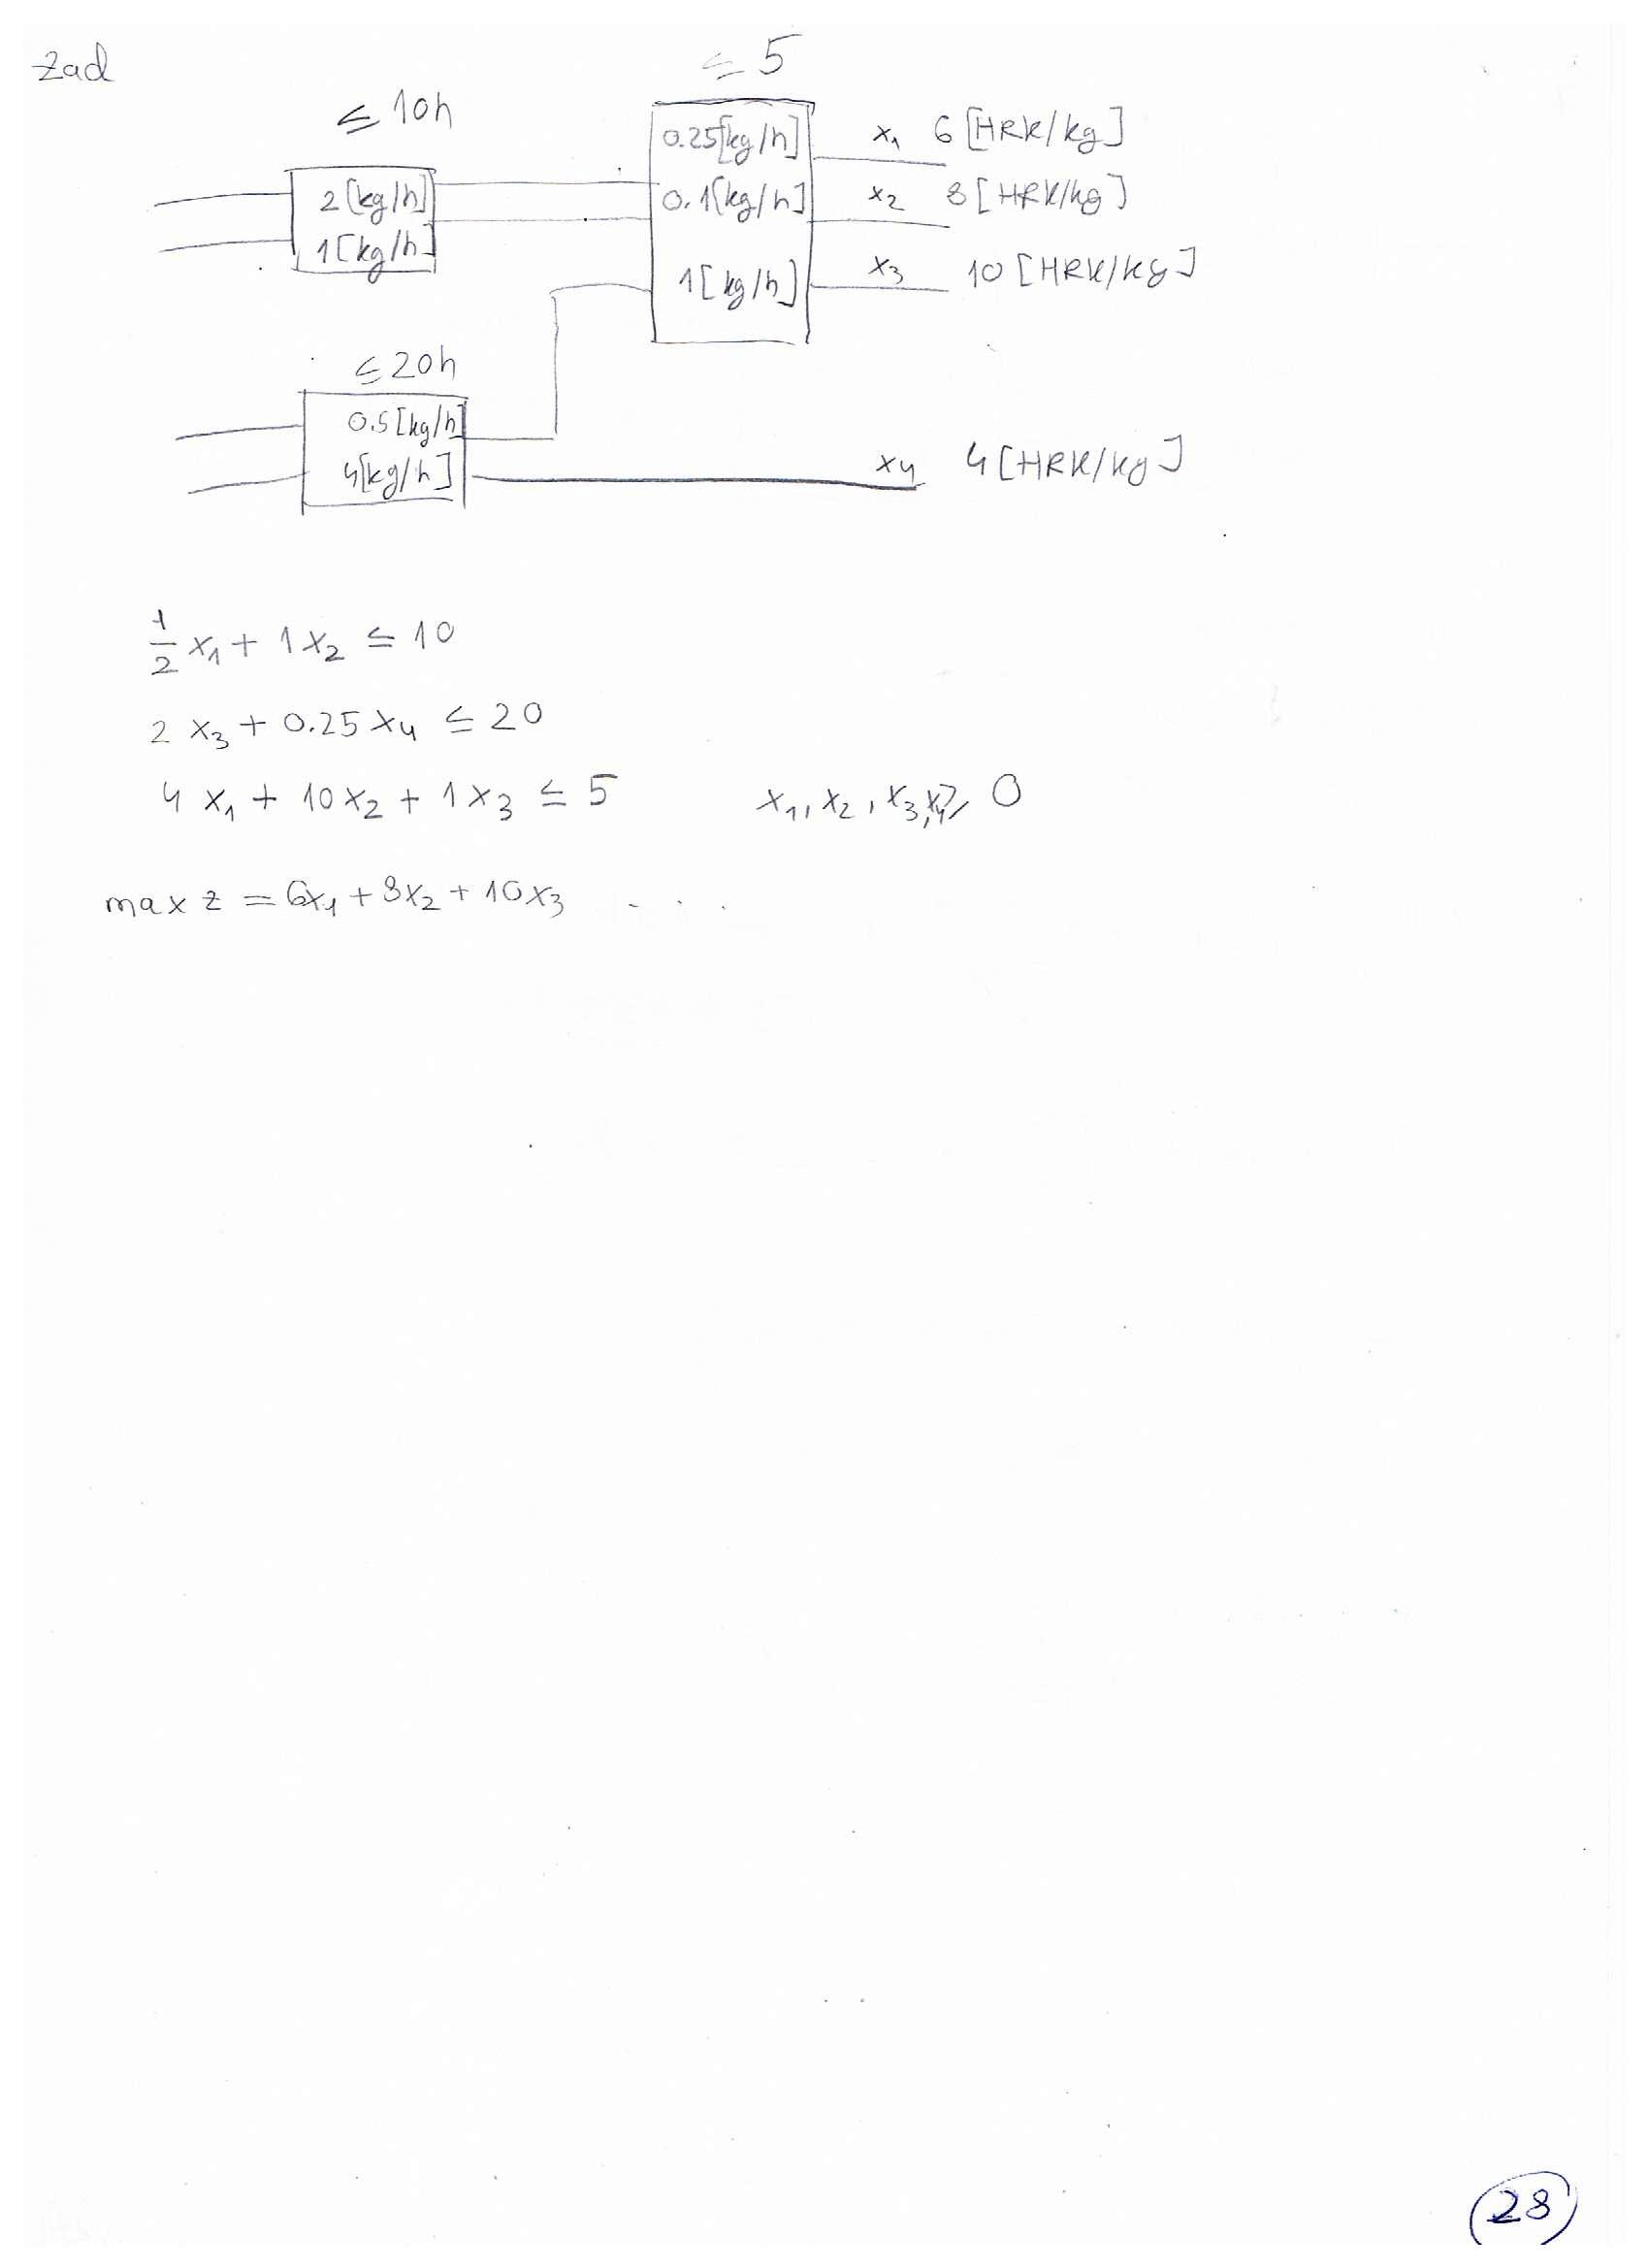 Zad
≤ 5
≤ 10h
0.25[kg/h] x₁ 6 [HRK/kg]
2 [kg/h] 0.1[kg/h] x₂ 8 [HRK/kg]
1 [kg/h]
1 [kg/h] x₃ 10 [HRK/kg]
≤ 20h
0.5 [kg/h]
4[kg/h] x₄ 4 [HRK/kg]
1/2 x₁ + 1 x₂ ≤ 10
2 x₃ + 0.25 x₄ ≤ 20
4 x₁ + 10 x₂ + 1 x₃ ≤ 5 x₁, x₂, x₃, x₄ ≥ 0
max z = 6x₁ + 8x₂ + 10x₃ . . . .
28